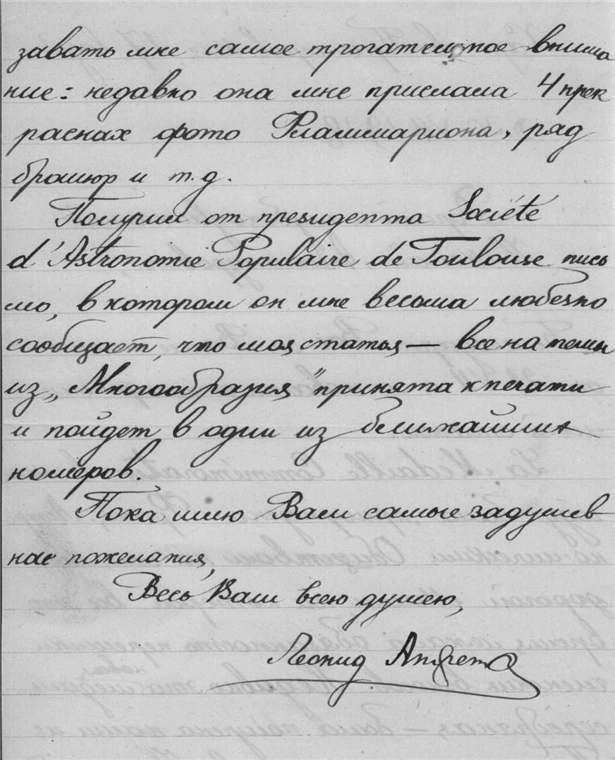 зывать мне самое трогательное внима
ние: недавно она мне прислала 4 прек
расных фото Фламмариона, ряд
брошюр и т.д.
Получил от президента Société
d'Astronomie Populaire de Toulouse пись
мо, в котором он мне весьма любезно
сообщает, что моя статья — все на темы
из „Многообразия" принята к печати
и пойдет в один из ближайших
номеров.
Пока шлю Вам самые задушев
ные пожелания,
Весь Ваш всею душею,
Леонид Андренко